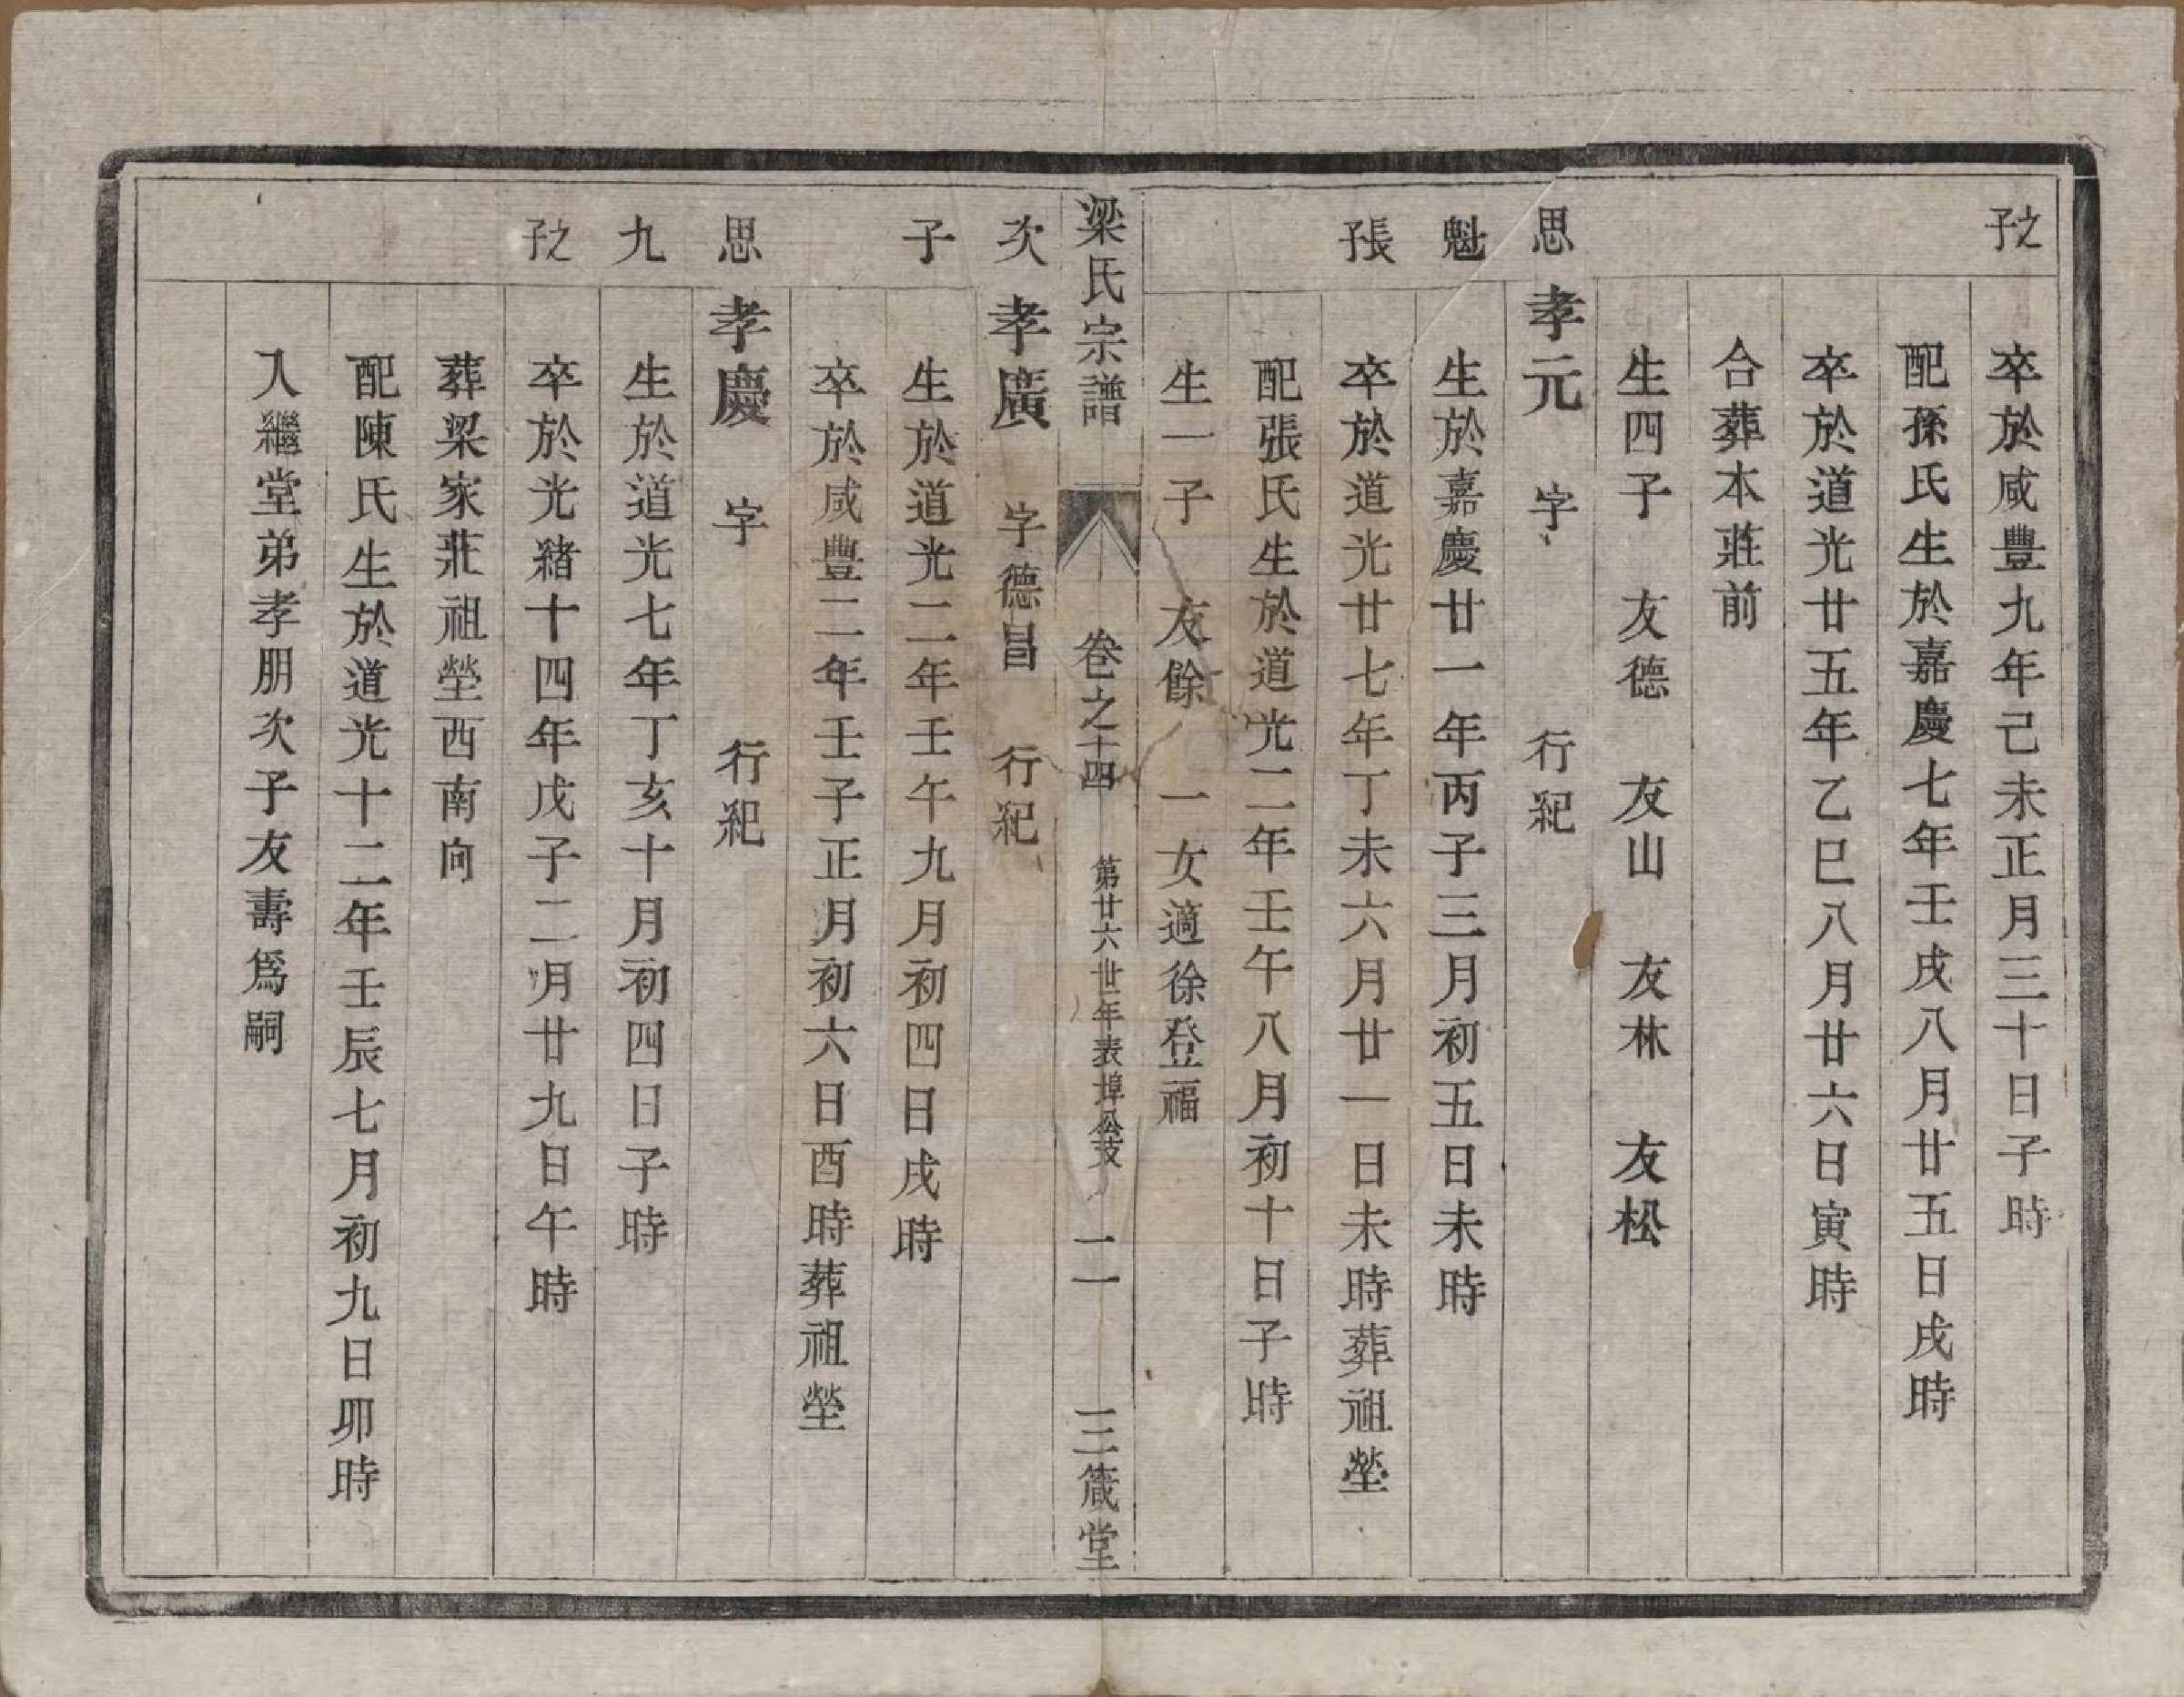 之子
卒於咸豐九年己未正月三十日子時
配孫氏生於嘉慶七年壬戌八月廿五日戌時
卒於道光廿五年乙巳八月廿六日寅時
合葬本莊前
生四子 友德 友山 友林 友松
思 孝元 字 行紀
魁 生於嘉慶廿一年丙子三月初五日未時
張子 卒於道光廿七年丁未六月廿一日未時葬祖塋
配張氏生於道光二年壬午八月初十日子時
生一子 友餘 一女適徐登福
梁氏宗譜 卷之十四 第廿六世年表埠公支 二一 三箴堂
次 孝廣 字德昌 行紀
子 生於道光二年壬午九月初四日戌時
卒於咸豐二年壬子正月初六日酉時葬祖塋
思 孝慶 字 行紀
九 生於道光七年丁亥十月初四日子時
之子 卒於光緒十四年戊子二月廿九日午時
葬梁家莊祖塋西南向
配陳氏生於道光十二年壬辰七月初九日卯時
入繼堂弟孝朋次子友壽爲嗣